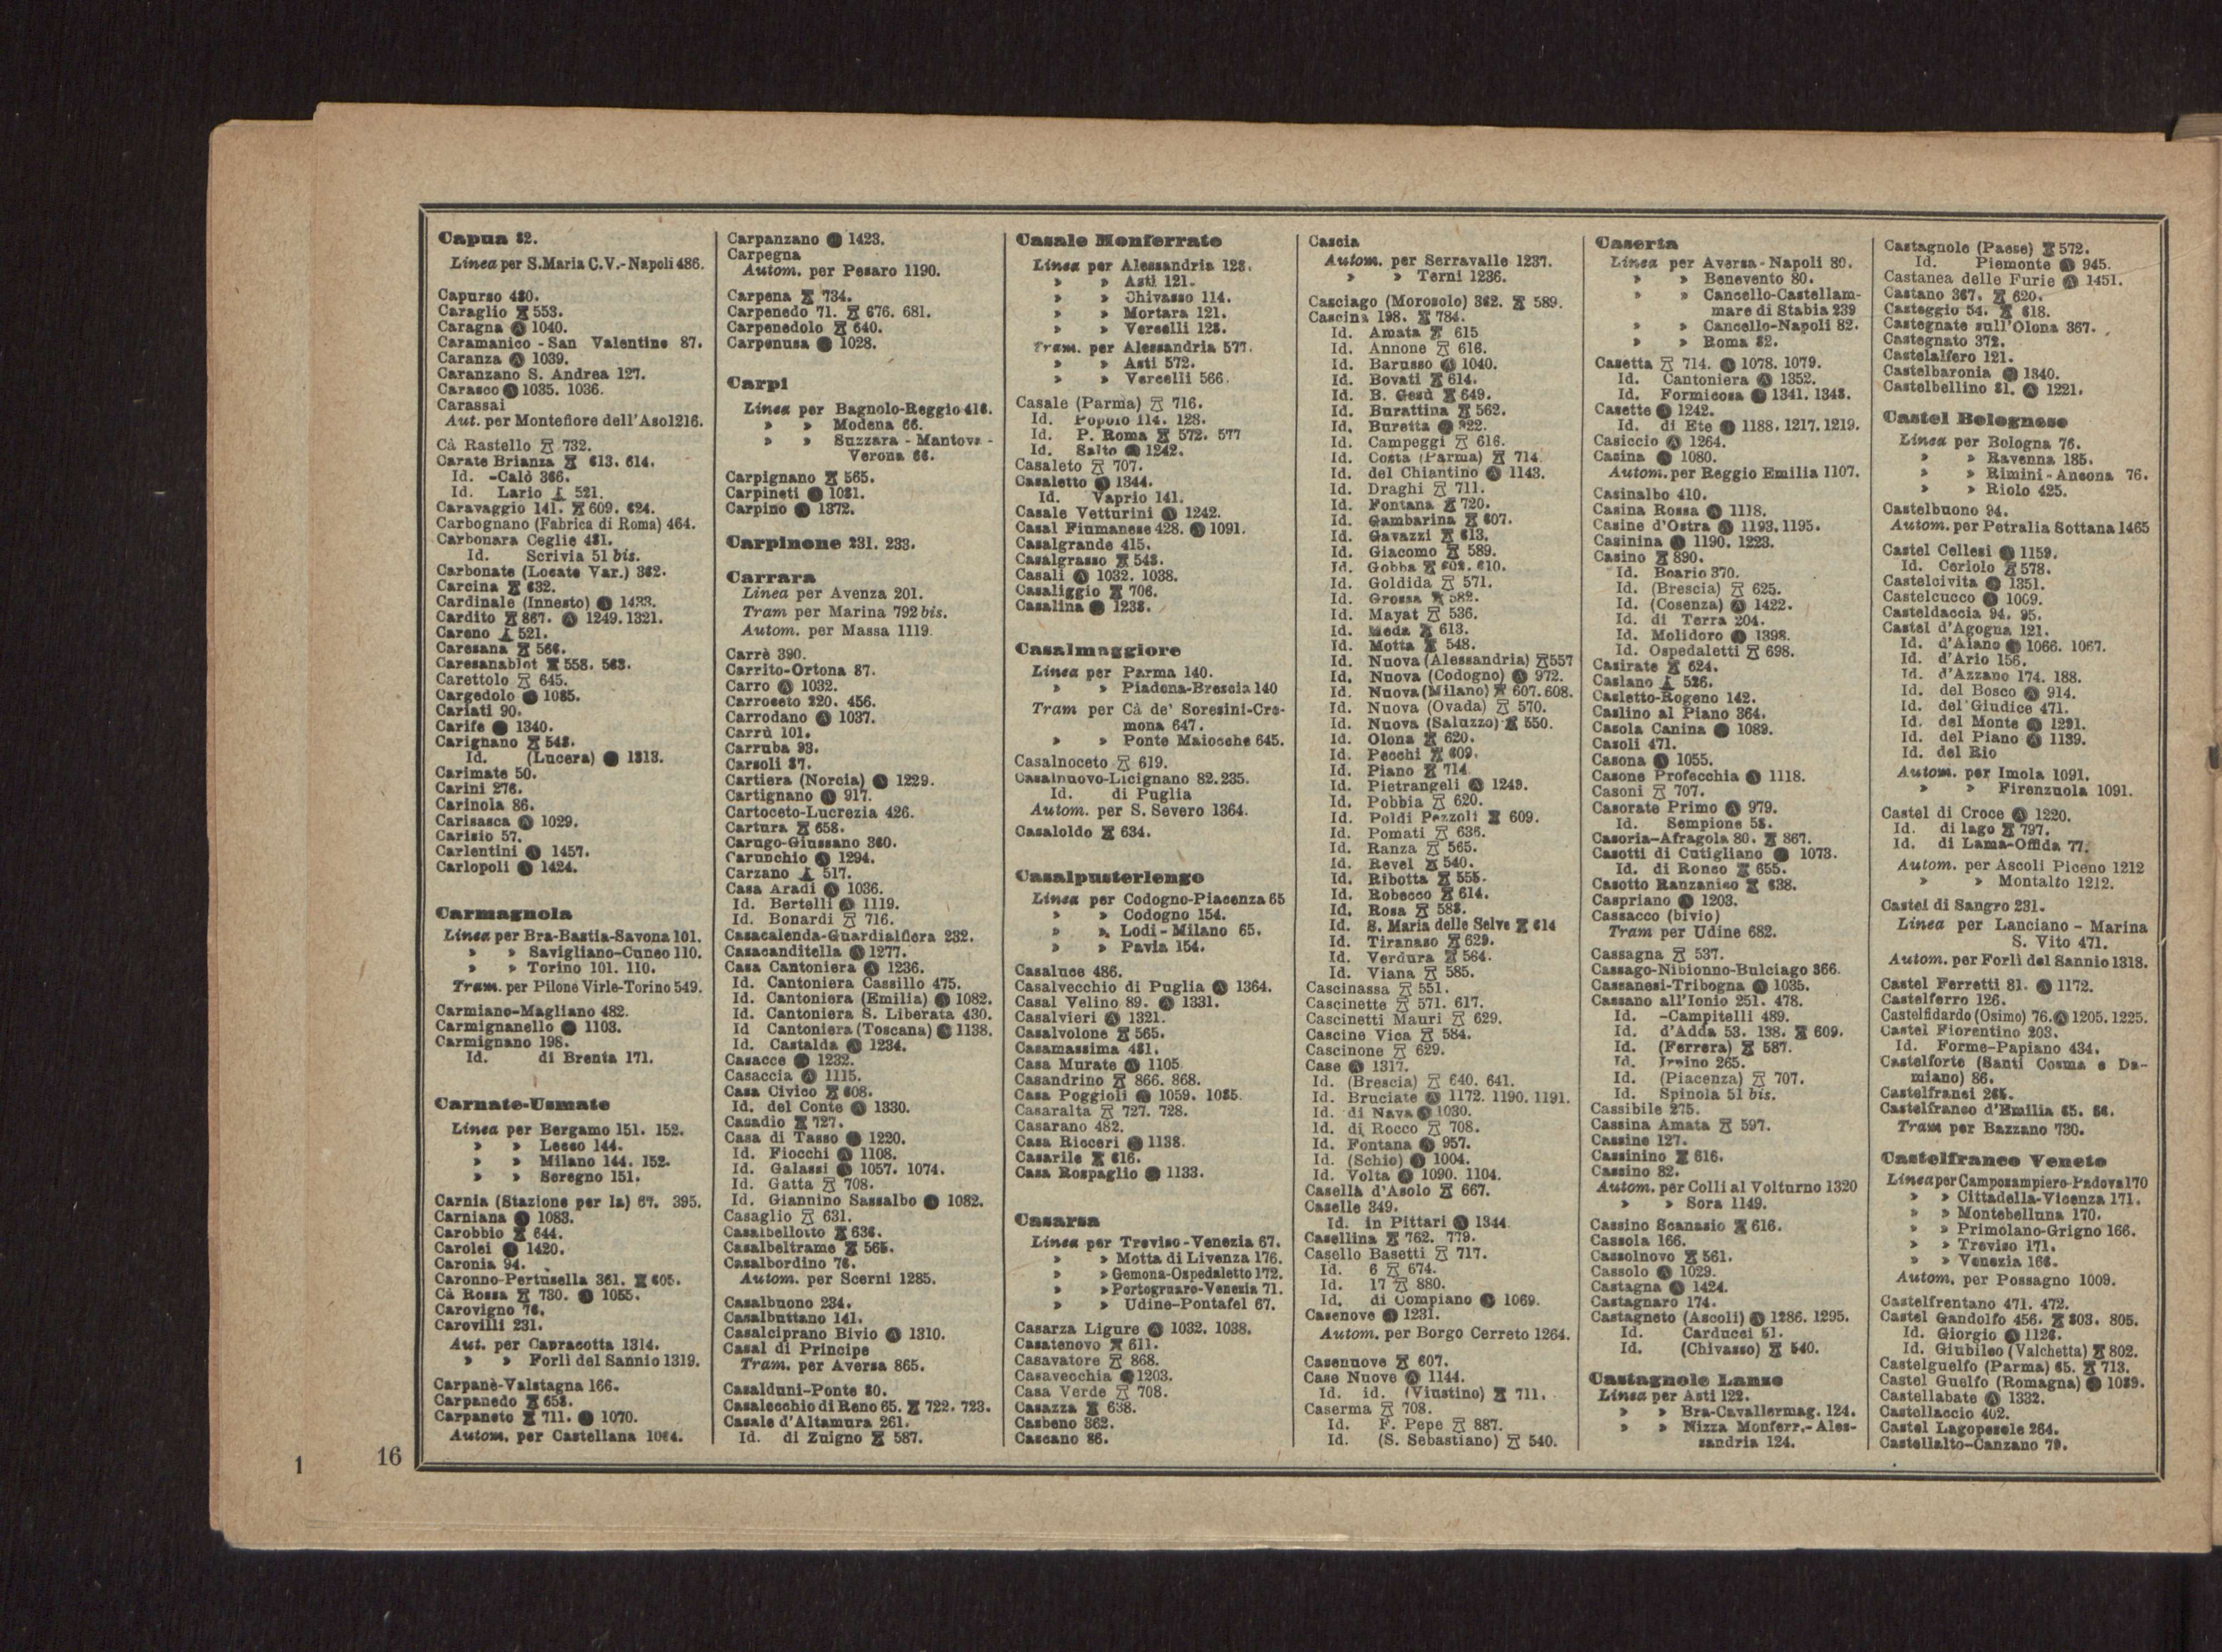 Capua 82.
Linea per S.Maria C.V.-Napoli 486.
Capurso 480.
Caraglio 553.
Caragna Ⓐ 1040.
Caramanico - San Valentino 87.
Caranza Ⓐ 1039.
Caranzano S. Andrea 127.
Carasco Ⓐ 1035. 1036.
Carassai
Aut. per Montefiore dell'Aso 1216.
Cà Rastello 732.
Carate Brianza 613. 614.
Id. -Calò 366.
Id. Lario 521.
Caravaggio 141. 609. 624.
Carbognano (Fabrica di Roma) 464.
Carbonara Ceglie 481.
Id. Scrivia 51 bis.
Carbonate (Locate Var.) 362.
Carcina 632.
Cardinale (Innesto) Ⓐ 1433.
Cardito 867. Ⓐ 1249. 1321.
Careno 521.
Caresana 566.
Caresanablot 558. 563.
Carettolo 645.
Cargedolo Ⓐ 1085.
Cariati 90.
Carife Ⓐ 1340.
Carignano 548.
Id. (Lucera) Ⓐ 1313.
Carimate 50.
Carini 276.
Carinola 86.
Carisasca Ⓐ 1029.
Carisio 57.
Carlentini Ⓐ 1457.
Carlopoli Ⓐ 1424.
Carmagnola
Linea per Bra-Bastia-Savona 101.
» » Savigliano-Cuneo 110.
» » Torino 101. 110.
Tram. per Pilone Virle-Torino 549.
Carmiano-Magliano 482.
Carmignanello Ⓐ 1103.
Carmignano 198.
Id. di Brenta 171.
Carnate-Usmate
Linea per Bergamo 151. 152.
» » Lecco 144.
» » Milano 144. 152.
» » Seregno 151.
Carnia (Stazione per la) 67. 395.
Carniana Ⓐ 1083.
Carobbio 644.
Carolei Ⓐ 1420.
Caronia 94.
Caronno-Pertusella 361. 605.
Cà Rossa 730. Ⓐ 1055.
Carovigno 76.
Carovilli 231.
Aut. per Capracotta 1314.
» » Forlì del Sannio 1319.
Carpanè-Valstagna 166.
Carpanedo 658.
Carpaneto 711. Ⓐ 1070.
Autom. per Castellana 1064.
Carpanzano Ⓐ 1423.
Carpegna
Autom. per Pesaro 1190.
Carpena 734.
Carpenedo 71. 676. 681.
Carpenedolo 640.
Carpenusa Ⓐ 1028.
Carpi
Linea per Bagnolo-Reggio 418.
» » Modena 66.
» » Suzzara - Mantova -
Verona 66.
Carpignano 565.
Carpineti Ⓐ 1081.
Carpino Ⓐ 1372.
Carpinone 231. 233.
Carrara
Linea per Avenza 201.
Tram per Marina 792 bis.
Autom. per Massa 1119.
Carrè 390.
Carrito-Ortona 87.
Carro Ⓐ 1032.
Carroceto 220. 456.
Carrodano Ⓐ 1037.
Carrù 101.
Carruba 93.
Carsoli 87.
Cartiera (Norcia) Ⓐ 1229.
Cartignano Ⓐ 917.
Cartoceto-Lucrezia 426.
Cartura 658.
Carugo-Giussano 360.
Carunchio Ⓐ 1294.
Carzano 517.
Casa Aradi Ⓐ 1036.
Id. Bertelli Ⓐ 1119.
Id. Bonardi 716.
Casacalenda-Guardialfiera 232.
Casacanditella Ⓐ 1277.
Casa Cantoniera Ⓐ 1236.
Id. Cantoniera Cassillo 475.
Id. Cantoniera (Emilia) Ⓐ 1082.
Id. Cantoniera S. Liberata 430.
Id Cantoniera (Toscana) Ⓐ 1138.
Id. Castalda Ⓐ 1234.
Casacce Ⓐ 1232.
Casaccia Ⓐ 1115.
Casa Civico 608.
Id. del Conte Ⓐ 1330.
Casadio 727.
Casa di Tasso Ⓐ 1220.
Id. Fiocchi Ⓐ 1108.
Id. Galassi Ⓐ 1057. 1074.
Id. Gatta 708.
Id. Giannino Sassalbo Ⓐ 1082.
Casaglio 631.
Casalbellotto 636.
Casalbeltrame 565.
Casalbordino 76.
Autom. per Scerni 1285.
Casalbuono 234.
Casalbuttano 141.
Casalciprano Bivio Ⓐ 1310.
Casal di Principe
Tram. per Aversa 865.
Casalduni-Ponte 80.
Casalecchio di Reno 65. 722. 723.
Casale d'Altamura 261.
Id. di Zuigno 587.
Casale Monferrato
Linea per Alessandria 128.
» » Asti 121.
» » Chivasso 114.
» » Mortara 121.
» » Vercelli 128.
Tram. per Alessandria 577.
» » Asti 572.
» » Vercelli 566.
Casale (Parma) 716.
Id. Popolo 114. 128.
Id. P. Roma 572. 577
Id. Salto Ⓐ 1242.
Casaleto 707.
Casaletto Ⓐ 1344.
Id. Vaprio 141.
Casale Vetturini Ⓐ 1242.
Casal Fiumanese 428. Ⓐ 1091.
Casalgrande 415.
Casalgrasso 548.
Casali Ⓐ 1032. 1038.
Casaliggio 706.
Casalina Ⓐ 1238.
Casalmaggiore
Linea per Parma 140.
» » Piadena-Brescia 140
Tram per Cà de' Soresini-Cre-
mona 647.
» » Ponte Maiocche 645.
Casalnoceto 619.
Casalnuovo-Licignano 82. 235.
Id. di Puglia
Autom. per S. Severo 1364.
Casaloldo 634.
Casalpusterlengo
Linea per Codogno-Piacenza 65
» » Codogno 154.
» » Lodi - Milano 65.
» » Pavia 154.
Casaluce 486.
Casalvecchio di Puglia Ⓐ 1364.
Casal Velino 89. Ⓐ 1331.
Casalvieri Ⓐ 1321.
Casalvolone 565.
Casamassima 481.
Casa Murate Ⓐ 1105
Casandrino 866. 868.
Casa Poggioli Ⓐ 1059. 1085.
Casaralta 727. 728.
Casarano 482.
Casa Ricceri Ⓐ 1138.
Casarile 616.
Casa Rospaglio Ⓐ 1133.
Casarsa
Linea per Treviso-Venezia 67.
» » Motta di Livenza 176.
» » Gemona-Ospedaletto 172.
» » Portogruaro-Venezia 71.
» » Udine-Pontafel 67.
Casarza Ligure Ⓐ 1032. 1038.
Casatenovo 611.
Casavatore 868.
Casavecchia Ⓐ 1203.
Casa Verde 708.
Casazza 638.
Casbeno 362.
Cascano 86.
Cascia
Autom. per Serravalle 1237.
» » Terni 1236.
Casciago (Morosolo) 362. 589.
Cascina 198. 784.
Id. Amata 615
Id. Annone 616.
Id. Barusso Ⓐ 1040.
Id. Bovati 614.
Id. B. Gesù 649.
Id. Burattina 562.
Id. Buretta Ⓐ 922.
Id. Campeggi 616.
Id. Costa (Parma) 714
Id. del Chiantino Ⓐ 1143.
Id. Draghi 711.
Id. Fontana 720.
Id. Gambarina 607.
Id. Gavazzi 613.
Id. Giacomo 589.
Id. Gobba 602. 610.
Id. Goldida 571.
Id. Grossa 582.
Id. Mayat 536.
Id. Meda 613.
Id. Motta 548.
Id. Nuova (Alessandria) 557
Id. Nuova (Codogno) Ⓐ 972.
Id. Nuova (Milano) 607. 608.
Id. Nuova (Ovada) 570.
Id. Nuova (Saluzzo) 550.
Id. Olona 620.
Id. Pecchi 609.
Id. Piano 714
Id. Pietrangeli Ⓐ 1249.
Id. Pobbia 620.
Id. Poldi Pezzoli 609.
Id. Pomati 636.
Id. Ranza 565.
Id. Revel 540.
Id. Ribotta 555.
Id. Robecco 614.
Id. Rosa 588.
Id. S. Maria delle Selve 614
Id. Tiranaso 629.
Id. Verdura 564.
Id. Viana 585.
Cascinassa 551.
Cascinette 571. 617.
Cascinetti Mauri 629.
Cascine Vica 584.
Cascinone 629.
Case Ⓐ 1317.
Id. (Brescia) 640. 641.
Id. Bruciate Ⓐ 1172. 1190. 1191.
Id. di Nava Ⓐ 1030.
Id. di Rocco 708.
Id. Fontana Ⓐ 957.
Id. (Schio) Ⓐ 1004.
Id. Volta Ⓐ 1090. 1104.
Casella d'Asolo 667.
Caselle 349.
Id. in Pittari Ⓐ 1344
Casellina 762. 779.
Casello Basetti 717.
Id. 6 674.
Id. 17 880.
Id. di Compiano Ⓐ 1069.
Casenove Ⓐ 1231.
Autom. per Borgo Cerreto 1264.
Casenuove 607.
Case Nuove Ⓐ 1144.
Id. id. (Viustino) 711.
Caserma 708.
Id. F. Pepe 887.
Id. (S. Sebastiano) 540.
Caserta
Linea per Aversa-Napoli 80.
» » Benevento 80.
» » Cancello-Castellam-
mare di Stabia 239
» » Cancello-Napoli 82.
» » Roma 82.
Casetta 714. Ⓐ 1078. 1079.
Id. Cantoniera Ⓐ 1352.
Id. Formicosa Ⓐ 1341. 1343.
Casette Ⓐ 1242.
Id. di Ete Ⓐ 1188. 1217. 1219.
Casiccio Ⓐ 1264.
Casina Ⓐ 1080.
Autom. per Reggio Emilia 1107.
Casinalbo 410.
Casina Rossa Ⓐ 1118.
Casine d'Ostra Ⓐ 1193. 1195.
Casinina Ⓐ 1190. 1223.
Casino 890.
Id. Boario 370.
Id. (Brescia) 625.
Id. (Cosenza) Ⓐ 1422.
Id. di Terra 204.
Id. Molidoro Ⓐ 1398.
Id. Ospedaletti 698.
Casirate 624.
Caslano 526.
Casletto-Rogeno 142.
Caslino al Piano 364.
Casola Canina Ⓐ 1089.
Casoli 471.
Casona Ⓐ 1055.
Casone Profecchia Ⓐ 1118.
Casoni 707.
Casorate Primo Ⓐ 979.
Id. Sempione 58.
Casoria-Afragola 80. 867.
Casotti di Cutigliano Ⓐ 1073.
Id. di Ronco 655.
Casotto Ranzanico 638.
Caspriano Ⓐ 1203.
Cassacco (bivio)
Tram per Udine 682.
Cassagna 537.
Cassago-Nibionno-Bulciago 366.
Cassanesi-Tribogna Ⓐ 1035.
Cassano all'Ionio 251. 478.
Id. -Campitelli 489.
Id. d'Adda 53. 138. 609.
Id. (Ferrera) 587.
Id. Irpino 265.
Id. (Piacenza) 707.
Id. Spinola 51 bis.
Cassibile 275.
Cassina Amata 597.
Cassine 127.
Cassinino 616.
Cassino 82.
Autom. per Colli al Volturno 1320
» » Sora 1149.
Cassino Scanasio 616.
Cassola 166.
Cassolnovo 561.
Cassolo Ⓐ 1029.
Castagna Ⓐ 1424.
Castagnaro 174.
Castagneto (Ascoli) Ⓐ 1286. 1295.
Id. Carducci 51.
Id. (Chivasso) 540.
Castagnole Lanze
Linea per Asti 122.
» » Bra-Cavallermag. 124.
» » Nizza Monferr.-Ales-
sandria 124.
Castagnole (Paese) 572.
Id. Piemonte Ⓐ 945.
Castanea delle Furie Ⓐ 1451.
Castano 367. 620.
Casteggio 54. 618.
Castegnate sull'Olona 367.
Castegnato 372.
Castelalfero 121.
Castelbaronia Ⓐ 1340.
Castelbellino 81. Ⓐ 1221.
Castel Bolognese
Linea per Bologna 76.
» » Ravenna 185.
» » Rimini - Ancona 76.
» » Riolo 425.
Castelbuono 94.
Autom. per Petralia Sottana 1465
Castel Cellesi Ⓐ 1159.
Id. Ceriolo 578.
Castelcivita Ⓐ 1351.
Castelcucco Ⓐ 1009.
Casteldaccia 94. 95.
Castel d'Agogna 121.
Id. d'Aiano Ⓐ 1066. 1067.
Id. d'Ario 156.
Id. d'Azzano 174. 188.
Id. del Bosco Ⓐ 914.
Id. del Giudice 471.
Id. del Monte Ⓐ 1291.
Id. del Piano Ⓐ 1139.
Id. del Rio
Autom. per Imola 1091.
» » Firenzuola 1091.
Castel di Croce Ⓐ 1220.
Id. di lago 797.
Id. di Lama-Offida 77.
Autom. per Ascoli Piceno 1212
» » Montalto 1212.
Castel di Sangro 231.
Linea per Lanciano - Marina
S. Vito 471.
Autom. per Forlì del Sannio 1318.
Castel Ferretti 81. Ⓐ 1172.
Castelferro 126.
Castelfidardo (Osimo) 76. Ⓐ 1205. 1225.
Castel Fiorentino 203.
Id. Forme-Papiano 434.
Castelforte (Santi Cosma e Da-
miano) 86.
Castelfranci 265.
Castelfranco d'Emilia 65. 66.
Tram per Bazzano 730.
Castelfranco Veneto
Linea per Camposampiero-Padova 170
» » Cittadella-Vicenza 171.
» » Montebelluna 170.
» » Primolano-Grigno 166.
» » Treviso 171.
» » Venezia 166.
Autom. per Possagno 1009.
Castelfrentano 471. 472.
Castel Gandolfo 456. 803. 805.
Id. Giorgio Ⓐ 1126.
Id. Giubileo (Valchetta) 802.
Castelguelfo (Parma) 65. 713.
Castel Guelfo (Romagna) Ⓐ 1089.
Castellabate Ⓐ 1332.
Castellaccio 402.
Castel Lagopesole 264.
Castellalto-Canzano 79.
16
1